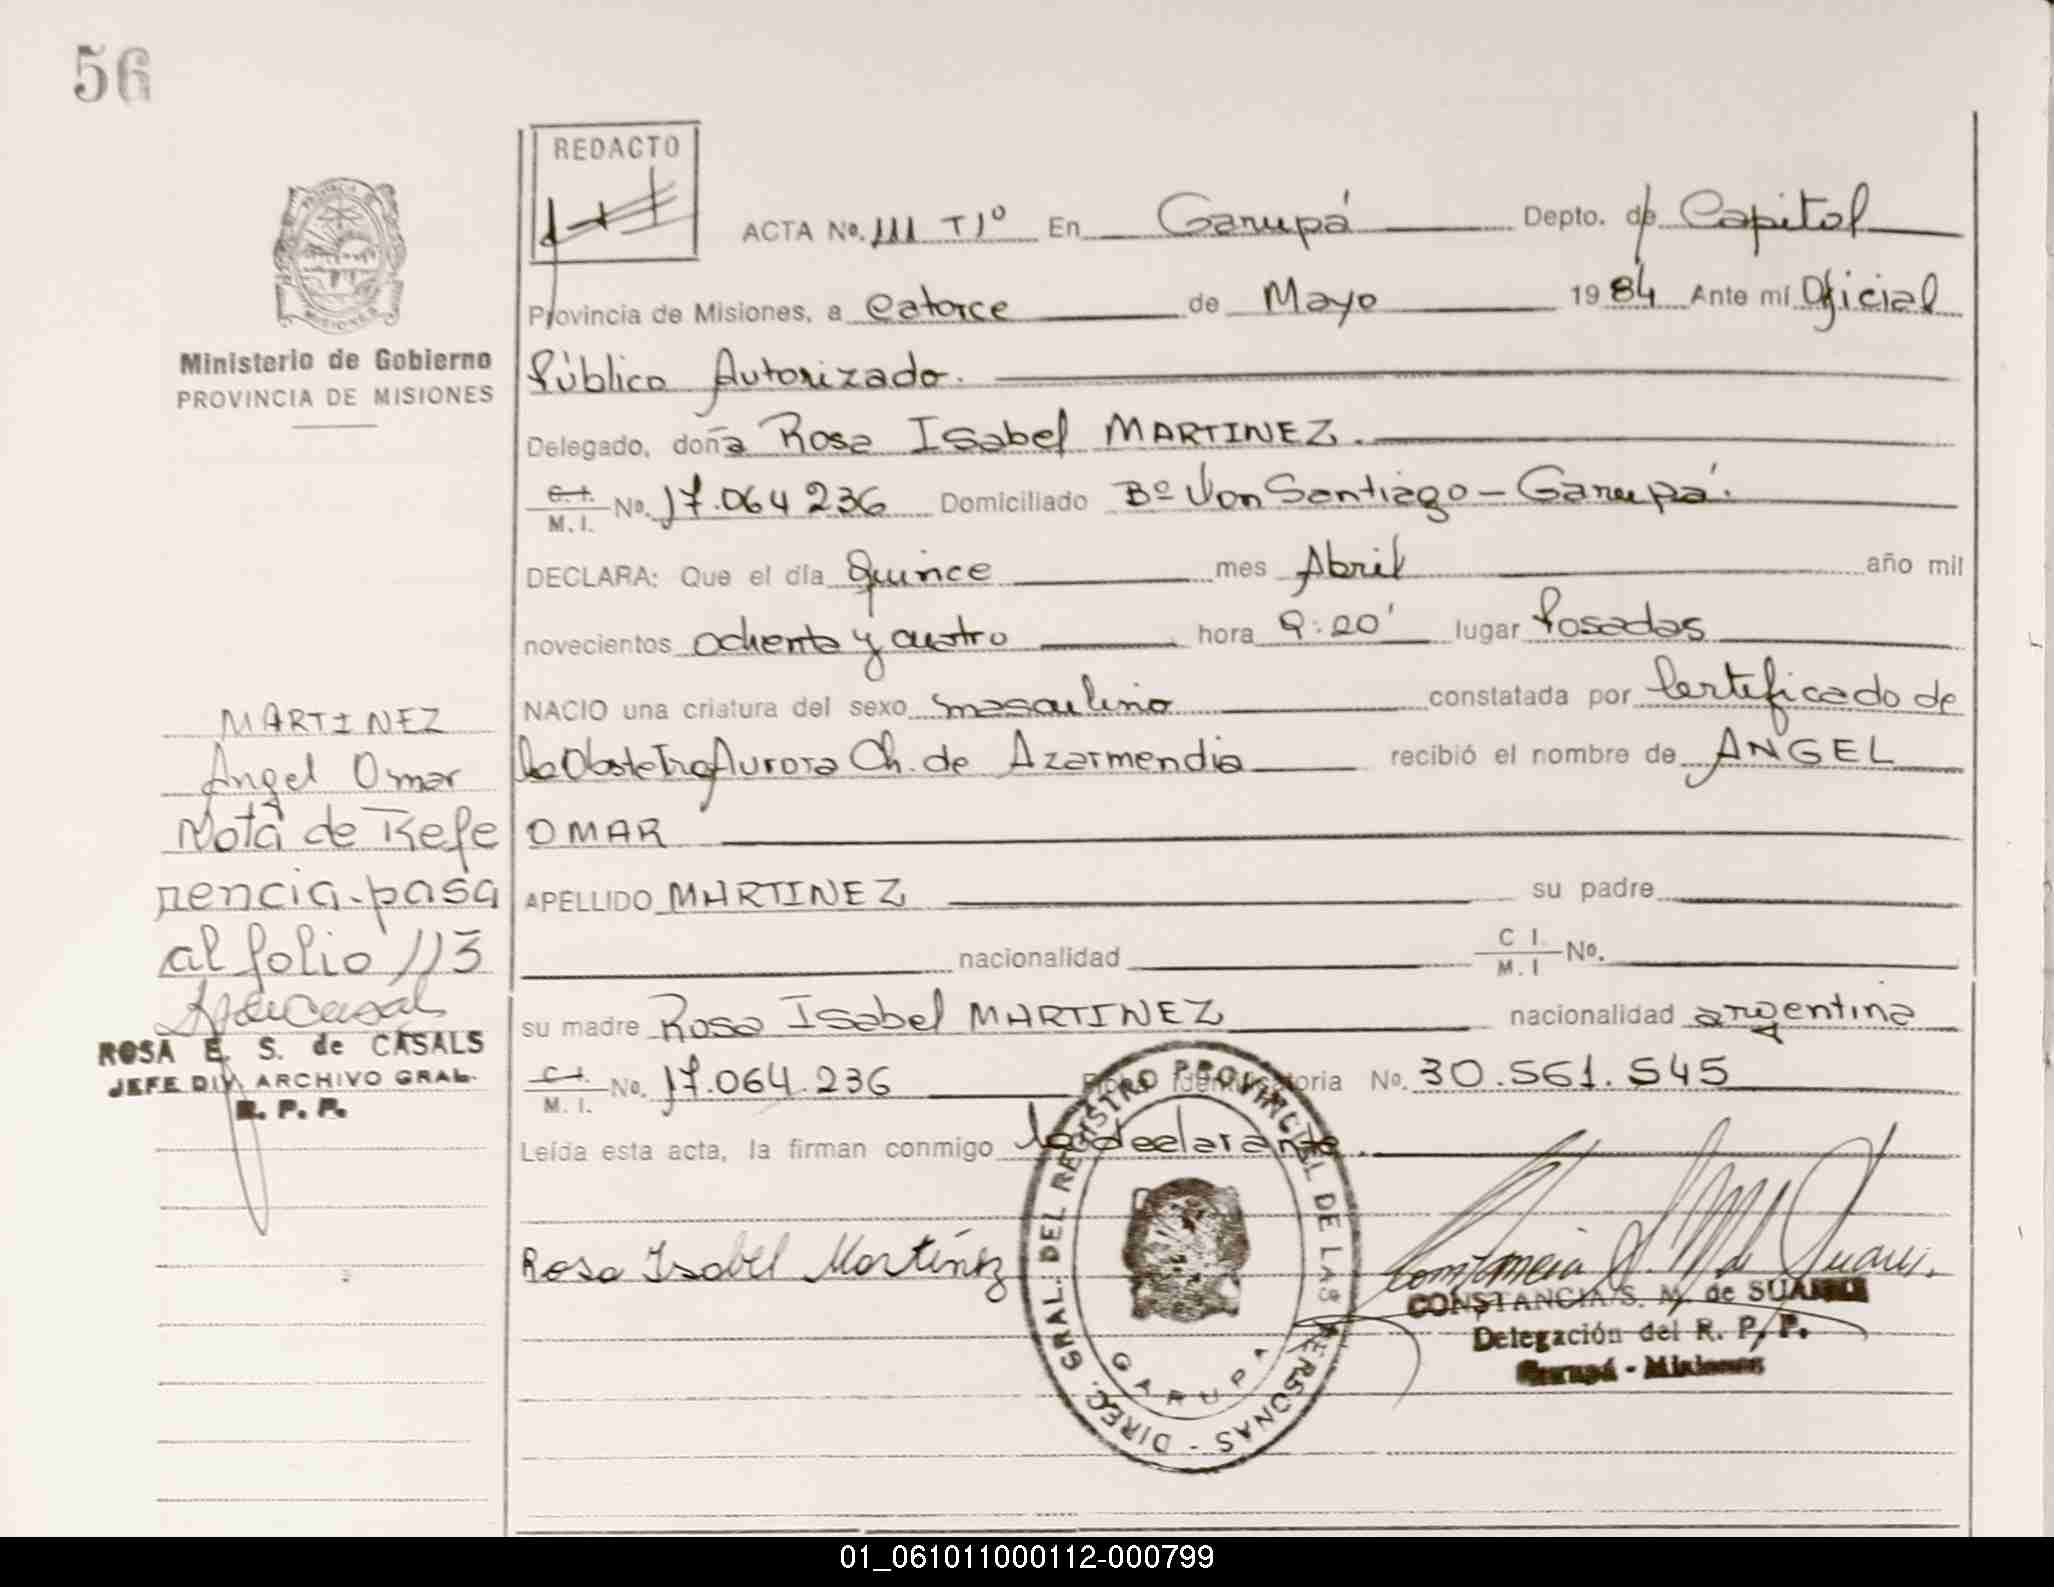 56
REDACTO
ACTA No. 111 T1º En Garupá Depto. de Capital
Provincia de Misiones, a catorce de Mayo 1984 Ante mí Oficial
Público Autorizado.
Delegado, doña Rosa Isabel MARTINEZ.
C.I. M.I. No. 17.064 236 Domiciliado Bº Von Santiago - Garupá.
DECLARA: Que el día quince mes Abril año mil
novecientos ochenta y cuatro hora 9:20' lugar Posadas
NACIO una criatura del sexo masculino constatada por Certificado de
la Obstetra Aurora Ch. de Azarmendia recibió el nombre de ANGEL
OMAR
APELLIDO MARTINEZ su padre
nacionalidad C I. M. I No.
su madre Rosa Isabel MARTINEZ nacionalidad argentina
C.I. M. I. No. 17.064.236 Ficha Identificatoria No. 30.561.545
Leída esta acta, la firman conmigo la declarante.
Rosa Isabel Martínez
Constancia S. M. de Suarez.
CONSTANCIA S. M. de SUAREZ
Delegación del R. P. P.
Garupá - Misiones
DIREC. GRAL. DEL REGISTRO PROVINCIAL DE LAS PERSONAS -
GARUPA
PROVINCIA
MISIONES
Ministerio de Gobierno
PROVINCIA DE MISIONES
MARTINEZ
Angel Omar
Nota de Refe
rencia-pasa
al folio 113
ROSA E. S. de CASALS
JEFE DIV. ARCHIVO GRAL.
R. P. P.
01_061011000112-000799